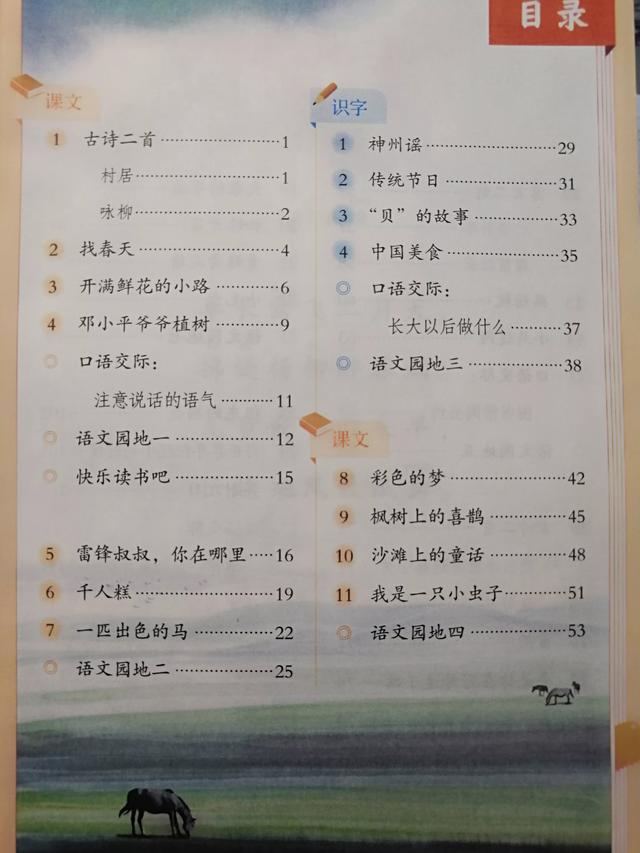 目录
课文
1 古诗二首……………1
村居……………1
咏柳……………2
2 找春天……………4
3 开满鲜花的小路……………6
4 邓小平爷爷植树……………9
◎ 口语交际：
注意说话的语气……………11
◎ 语文园地一……………12
◎ 快乐读书吧……………15
5 雷锋叔叔，你在哪里……16
6 千人糕……………19
7 一匹出色的马……………22
◎ 语文园地二……………25
识字
1 神州谣……………29
2 传统节日……………31
3 “贝”的故事……………33
4 中国美食……………35
◎ 口语交际：
长大以后做什么………37
◎ 语文园地三……………38
课文
8 彩色的梦……………42
9 枫树上的喜鹊……………45
10 沙滩上的童话……………48
11 我是一只小虫子…………51
◎ 语文园地四……………53